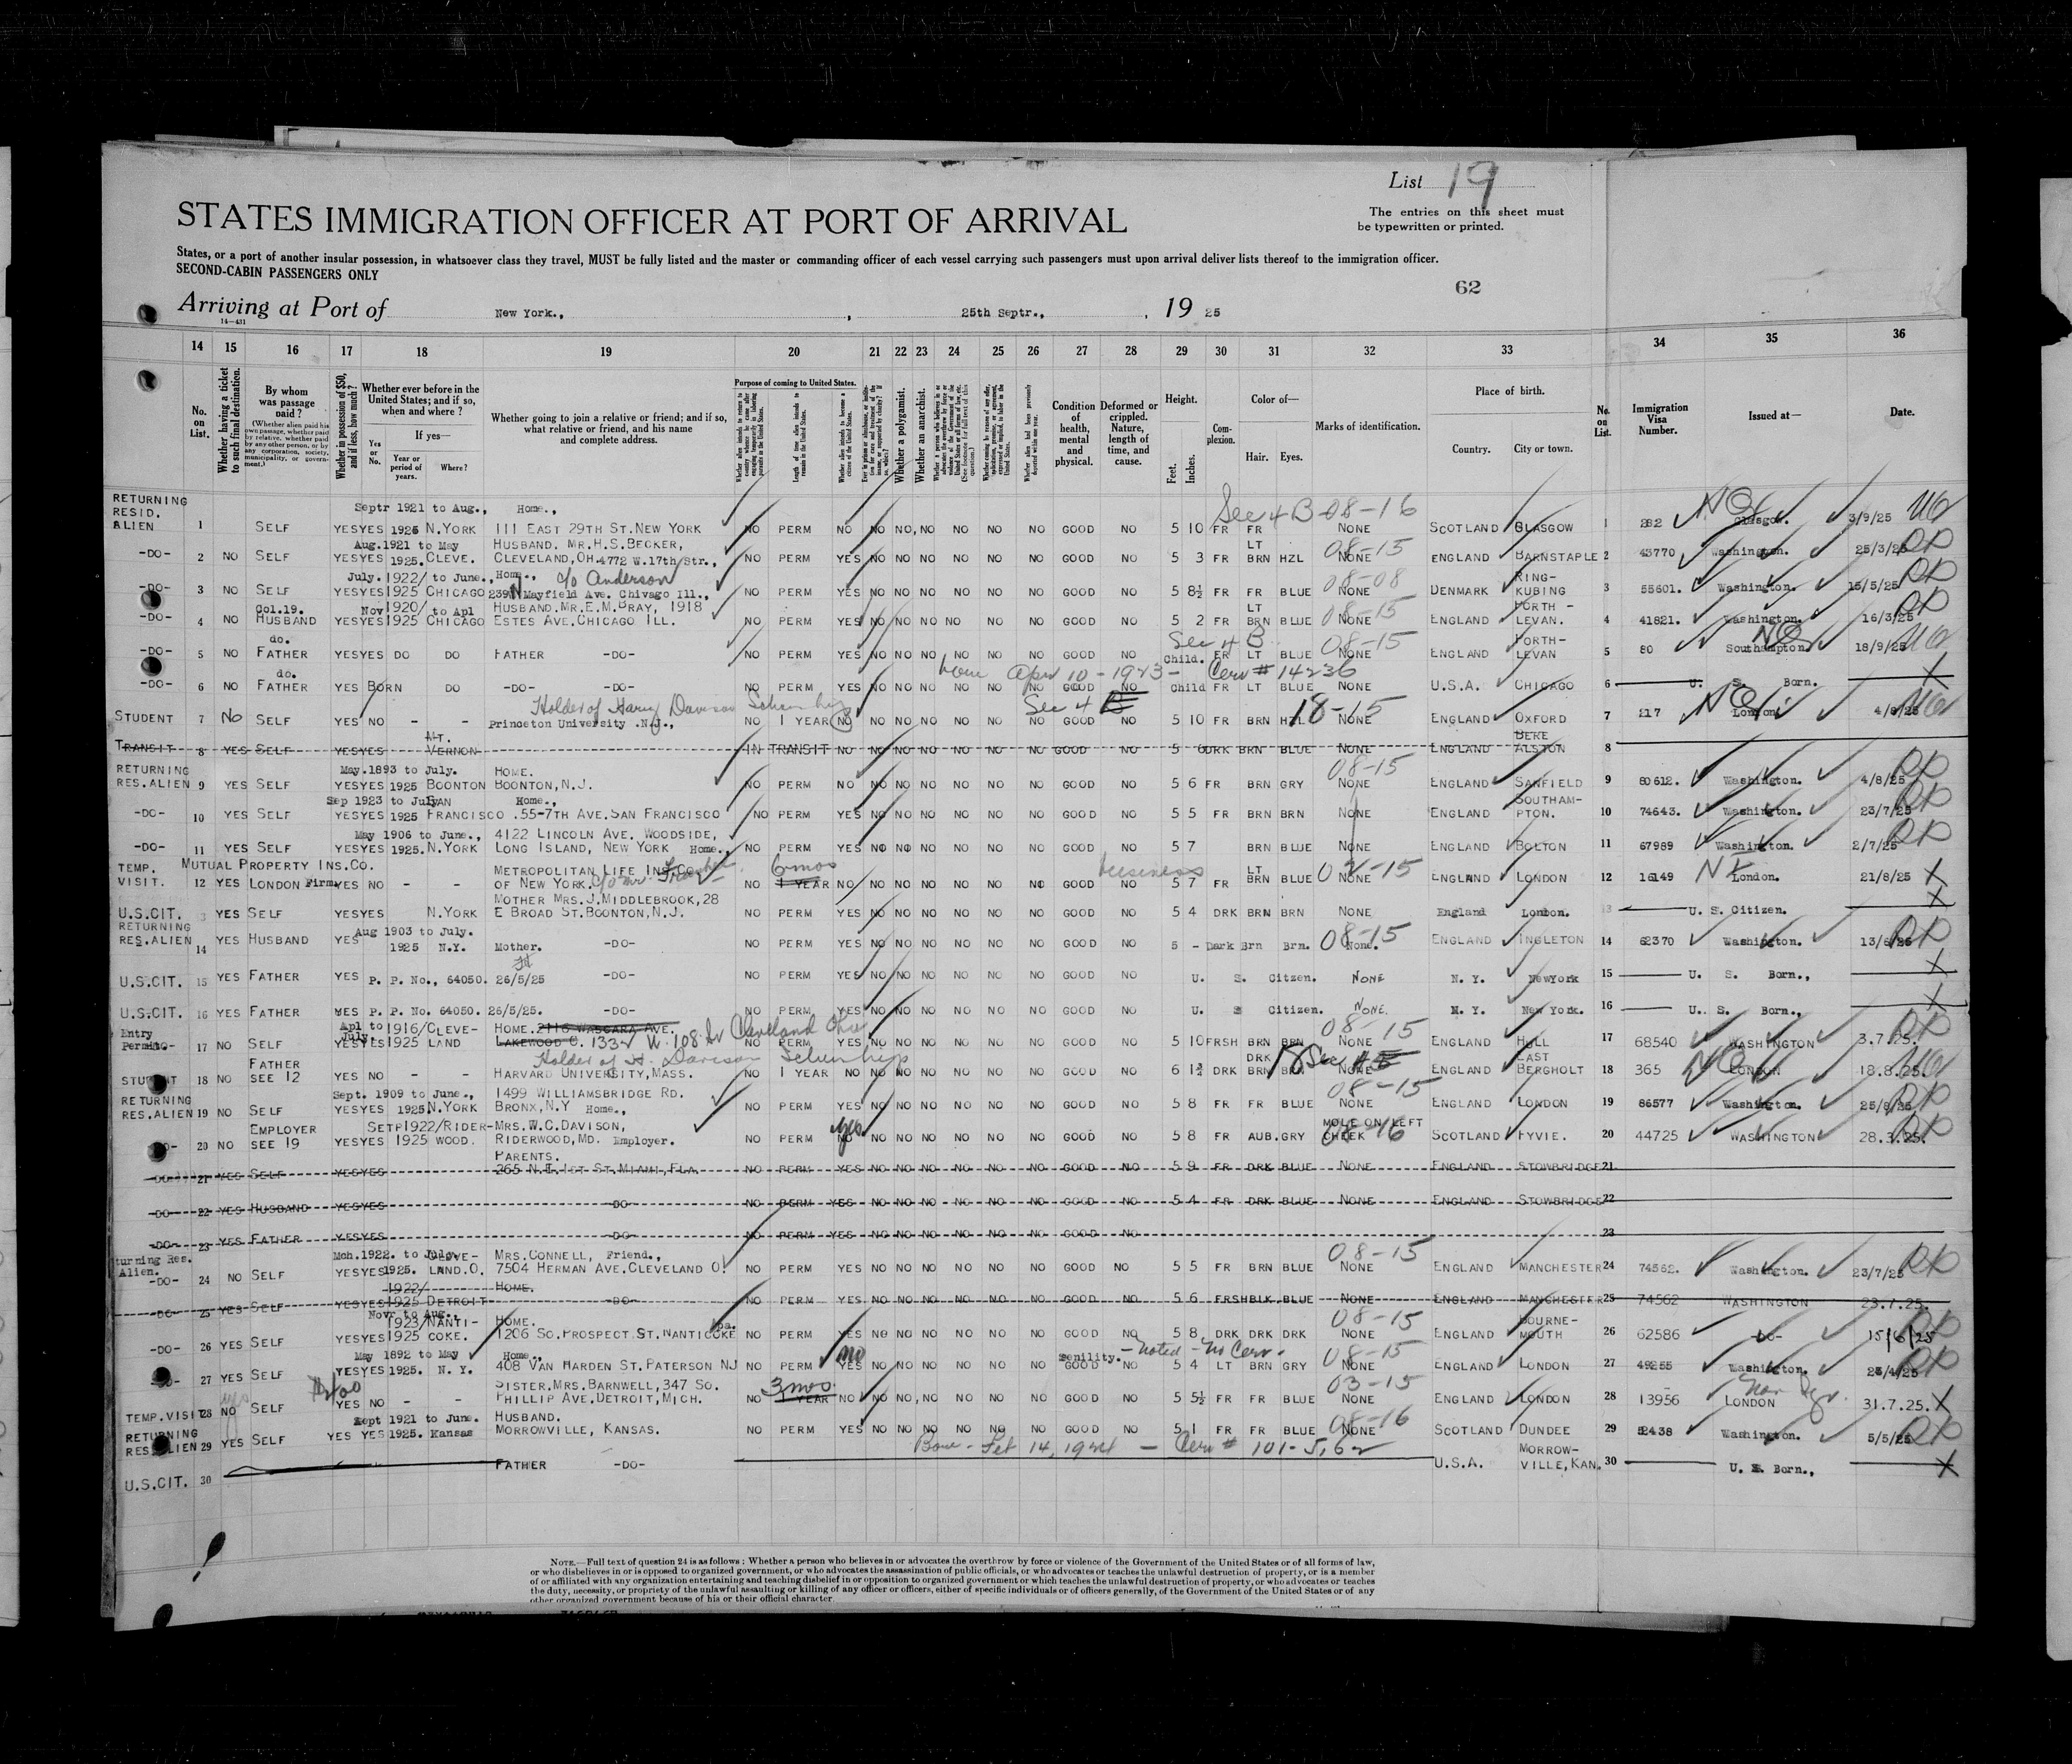 List 19
STATES IMMIGRATION OFFICER AT PORT OF ARRIVAL
The entries on this sheet must
be typewritten or printed.
States, or a port of another insular possession, in whatsoever class they travel, MUST be fully listed and the master or commanding officer of each vessel carrying such passengers must upon arrival deliver lists thereof to the immigration officer.
SECOND-CABIN PASSENGERS ONLY
62
Arriving at Port of New York., , 25th Septr., , 19 25
14—431
14 15 16 17 18 19 20 21 22 23 24 25 26 27 28 29 30 31 32 33 34 35 36
No. on List.
Whether having a ticket to such final destination.
By whom was passage paid?
(Whether alien paid his own passage, whether paid by relative, whether paid by any other person, or by any corporation, society, municipality, or government.)
Whether in possession of $50, and if less, how much?
Whether ever before in the United States; and if so, when and where?
Yes or No.
If yes—
Year or period of years.
Where?
Whether going to join a relative or friend; and if so, what relative or friend, and his name and complete address.
Purpose of coming to United States.
Length of time alien intends to remain in the United States.
Whether alien intends to become a citizen of the United States.
Whether a polygamist.
Whether an anarchist.
Condition of health, mental and physical.
Deformed or crippled. Nature, length of time, and cause.
Height.
Feet. Inches.
Complexion.
Color of—
Hair. Eyes.
Marks of identification.
Place of birth.
Country. City or town.
No. on List.
Immigration Visa Number.
Issued at—
Date.
RETURNING RESID. Septr 1921 to Aug., Home., Sec 4 B 08-16
ALIEN 1 SELF YES YES 1925 N.YORK 111 EAST 29TH ST. NEW YORK NO PERM NO NO NO, NO NO NO NO GOOD NO 5 10 FR FR NONE SCOTLAND GLASGOW 1 282 Glasgow. 3/9/25
Aug.1921 to May HUSBAND. MR.H.S.BECKER, LT 08-15
-DO- 2 NO SELF YES YES 1925. CLEVE. CLEVELAND, OH. 4772 W.17th Str., NO PERM YES NO NO NO NO NO NO GOOD NO 5 3 FR BRN HZL NONE ENGLAND BARNSTAPLE 2 43770 Washington. 25/3/25
July. 1922/ to June., Home., c/o Anderson 08-08 RING-
-DO- 3 NO SELF YES YES 1925 CHICAGO 239 N Mayfield Ave. Chivago Ill., NO PERM YES NO NO NO NO NO NO GOOD NO 5 8½ FR FR BLUE NONE DENMARK KUBING 3 55601. Washington. 15/5/25
Col.19. Nov 1920/ to Apl HUSBAND. MR.E.M.BRAY, 1918 LT 08-15 PORTH -
-DO- 4 NO HUSBAND YES YES 1925 CHICAGO ESTES AVE. CHICAGO ILL. NO PERM YES NO NO NO NO NO NO GOOD NO 5 2 FR BRN BLUE NONE ENGLAND LEVAN. 4 41821. Washington. 16/3/25
do. Sec 4 B 08-15 PORTH-
-DO- 5 NO FATHER YES YES DO DO FATHER -DO- NO PERM YES NO NO NO NO NO NO GOOD NO Child. FR LT BLUE NONE ENGLAND LEVAN 5 80 Southampton 18/9/25
do. Apr 10-1923- Cer # 14236
-DO- 6 NO FATHER YES BORN DO -DO- -DO- NO PERM YES NO NO NO NO NO NO GOOD NO Child FR LT BLUE NONE U.S.A. CHICAGO 6 U. S. Born. X
Holder of Harry Davison Scholarship Sec 4
STUDENT 7 No SELF YES NO - - Princeton University .N.J., NO 1 YEAR NO NO NO NO NO NO NO GOOD NO 5 10 FR BRN HZL 18-15 NONE ENGLAND OXFORD 7 217 London 4/8/25
MT. BERE
TRANSIT 8 YES SELF YES YES VERNON IN TRANSIT NO NO NO NO NO NO NO GOOD NO 5 0 DRK BRN BLUE NONE ENGLAND ALSTON 8
RETURNING May.1893 to July. HOME. 08-15
RES.ALIEN 9 YES SELF YES YES 1925 BOONTON BOONTON, N.J. NO PERM NO NO NO NO NO NO NO GOOD NO 5 6 FR BRN GRY NONE ENGLAND SANFIELD 9 80612. Washington. 4/8/25
Sep 1923 to July SAN Home., SOUTHAM-
-DO- 10 YES SELF YES YES 1925 FRANCISCO .55-7TH AVE. SAN FRANCISCO NO PERM YES NO NO NO NO NO NO GOOD NO 5 5 FR BRN BRN NONE ENGLAND PTON. 10 74643. Washington. 23/7/25
May 1906 to June., 4122 LINCOLN AVE. WOODSIDE,
-DO- 11 YES SELF YES YES 1925. N.YORK LONG ISLAND, NEW YORK Home., NO PERM YES NO NO NO NO NO NO GOOD NO 5 7 BRN BLUE NONE ENGLAND BOLTON 11 67989 Washington. 2/7/25
TEMP. MUTUAL PROPERTY INS.CO. METROPOLITAN LIFE INS.CO. 6 mos business LT 02-15
VISIT. 12 YES LONDON Firm. YES NO - - OF NEW YORK. c/o Mr. NO 1 YEAR NO NO NO NO NO NO NO GOOD NO 5 7 FR BRN BLUE NONE ENGLAND LONDON 12 16149 London. 21/8/25 X
MOTHER MRS.J.MIDDLEBROOK, 28
U.S.CIT. 3 YES SELF YES YES N.YORK E BROAD ST. BOONTON, N.J. NO PERM YES NO NO NO NO NO NO GOOD NO 5 4 DRK BRN BRN NONE England London. 13 U. S. Citizen. X
RETURNING Aug 1903 to July. 08-15
RES.ALIEN 14 YES HUSBAND YES 1925 N.Y. Mother. -DO- NO PERM YES NO NO NO NO NO NO GOOD NO 5 - Dark Brn Brn. None. ENGLAND INGLETON 14 62370 Washington. 13/6/25
U.S.CIT. 15 YES FATHER YES P. P. No., 64050. 26/5/25 -DO- NO PERM YES NO NO NO NO NO NO GOOD NO U. S. Citzen. NONE N. Y. NewYork 15 U. S. Born., X
U.S.CIT. 16 YES FATHER YES P. P. No. 64050. 26/5/25. -DO- NO PERM YES NO NO NO NO NO NO GOOD NO U. S Citizen. NONE. N. Y. New York. 16 U. S. Born., X
Entry Apl to July. 1916/CLEVE- HOME. 2116 WASCARA AVE. 08-15
Permit 17 NO SELF YES YES 1925 LAND LAKEWOOD O. 1332 W. 108 St Cleveland Ohio NO PERM YES NO NO NO NO NO NO GOOD NO 5 10 FRSH BRN BRN NONE ENGLAND HULL 17 68540 WASHINGTON 3.7.25.
FATHER Holder of H. Davison Scholarship DRK 18 Sec 4 EAST
STUDENT 18 NO SEE 12 YES NO - - HARVARD UNIVERSITY, MASS. NO 1 YEAR NO NO NO NO NO NO NO GOOD NO 6 1¾ DRK BRN BRN NONE ENGLAND BERGHOLT 18 365 LONDON 18.8.25
RETURNING Sept. 1909 to June., 1499 WILLIAMSBRIDGE RD. 08-15
RES.ALIEN 19 NO SELF YES YES 1925 N.YORK BRONX, N.Y Home., NO PERM YES NO NO NO NO NO NO GOOD NO 5 8 FR FR BLUE NONE ENGLAND LONDON 19 86577 Washington. 25/8/25
EMPLOYER SETP 1922/RIDER- MRS.W.C.DAVISON, yes MOLE ON LEFT
-DO- 20 NO SEE 19 YES YES 1925 WOOD. RIDERWOOD, MD. Employer. NO PERM NO NO NO NO NO NO NO GOOD NO 5 8 FR AUB. GRY CHEEK 08-16 SCOTLAND FYVIE. 20 44725 WASHINGTON 28.3.25.
PARENTS.
-DO- 21 YES SELF YES YES 265 N.E. 1ST ST. MIAMI, FLA. NO PERM YES NO NO NO NO NO NO GOOD NO 5 9 FR DRK BLUE NONE ENGLAND STOWBRIDGE 21
-DO- 22 YES HUSBAND YES YES -DO- NO PERM YES NO NO NO NO NO NO GOOD NO 5 4 FR DRK BLUE NONE ENGLAND STOWBRIDGE 22
-DO- 23 YES FATHER YES YES -DO- NO PERM YES NO NO NO NO NO NO GOOD NO 23
turning Res. Alien. Mch.1922. to July. CLEVE- MRS.CONNELL, Friend., 08-15
-DO- 24 NO SELF YES YES 1925. LAND.O. 7504 HERMAN AVE. CLEVELAND O. NO PERM YES NO NO NO NO NO NO GOOD NO 5 5 FR BRN BLUE NONE ENGLAND MANCHESTER 24 74562. Washington. 23/7/25
1922/ HOME.
-DO- 25 YES SELF YES YES 1925 DETROIT -DO- NO PERM YES NO NO NO NO NO NO GOOD NO 5 6 FRSH BLK BLUE NONE ENGLAND MANCHESTER 25 74562 WASHINGTON 23.7.25.
Novr to Aug., 1923/NANTI- HOME. Pa. 08-15 BOURNE-
-DO- 26 YES SELF YES YES 1925 COKE. 1206 SO. PROSPECT. ST. NANTICOKE NO PERM YES NO NO NO NO NO NO GOOD NO 5 8 DRK DRK DRK NONE ENGLAND MOUTH 26 62586 -DO- 15/6/25
May 1892 to May Home., no Senility. - Noted - No Cer. 08-15
-DO- 27 YES SELF YES YES 1925. N. Y. 408 VAN HARDEN ST. PATERSON NJ NO PERM YES NO NO NO NO NO NO GOOD NO 5 4 LT BRN GRY NONE ENGLAND LONDON 27 49255 Washington. 23/4/25
yes SISTER, MRS. BARNWELL, 347 SO. 3 mos. 03-15
TEMP.VISIT 28 NO SELF YES NO - - PHILLIP AVE, DETROIT, MICH. NO 1 YEAR NO NO NO NO NO NO NO GOOD NO 5 5½ FR FR BLUE NONE ENGLAND LONDON 28 13956 LONDON 31.7.25. X
RETURNING Sept 1921 to June. HUSBAND. 08-16
RES.ALIEN 29 YES SELF YES YES 1925. Kansas MORROWVILLE, KANSAS. NO PERM YES NO NO NO NO NO NO GOOD NO 5 1 FR FR BLUE NONE SCOTLAND DUNDEE 29 52438 Washington. 5/5/25
Born - Feb 14, 1924 - Cer # 101-5,62 MORROW-
U.S.CIT. 30 FATHER -DO- U.S.A. VILLE, KAN. 30 U. S. Born., X
NOTE.—Full text of question 24 is as follows: Whether a person who believes in or advocates the overthrow by force or violence of the Government of the United States or of all forms of law,
or who disbelieves in or is opposed to organized government, or who advocates the assassination of public officials, or who advocates or teaches the unlawful destruction of property, or is a member
of or affiliated with any organization entertaining and teaching disbelief in or opposition to organized government or which teaches the unlawful destruction of property, or who advocates or teaches
the duty, necessity, or propriety of the unlawful assaulting or killing of any officer or officers, either of specific individuals or of officers generally, of the Government of the United States or of any
other organized government because of his or their official character.